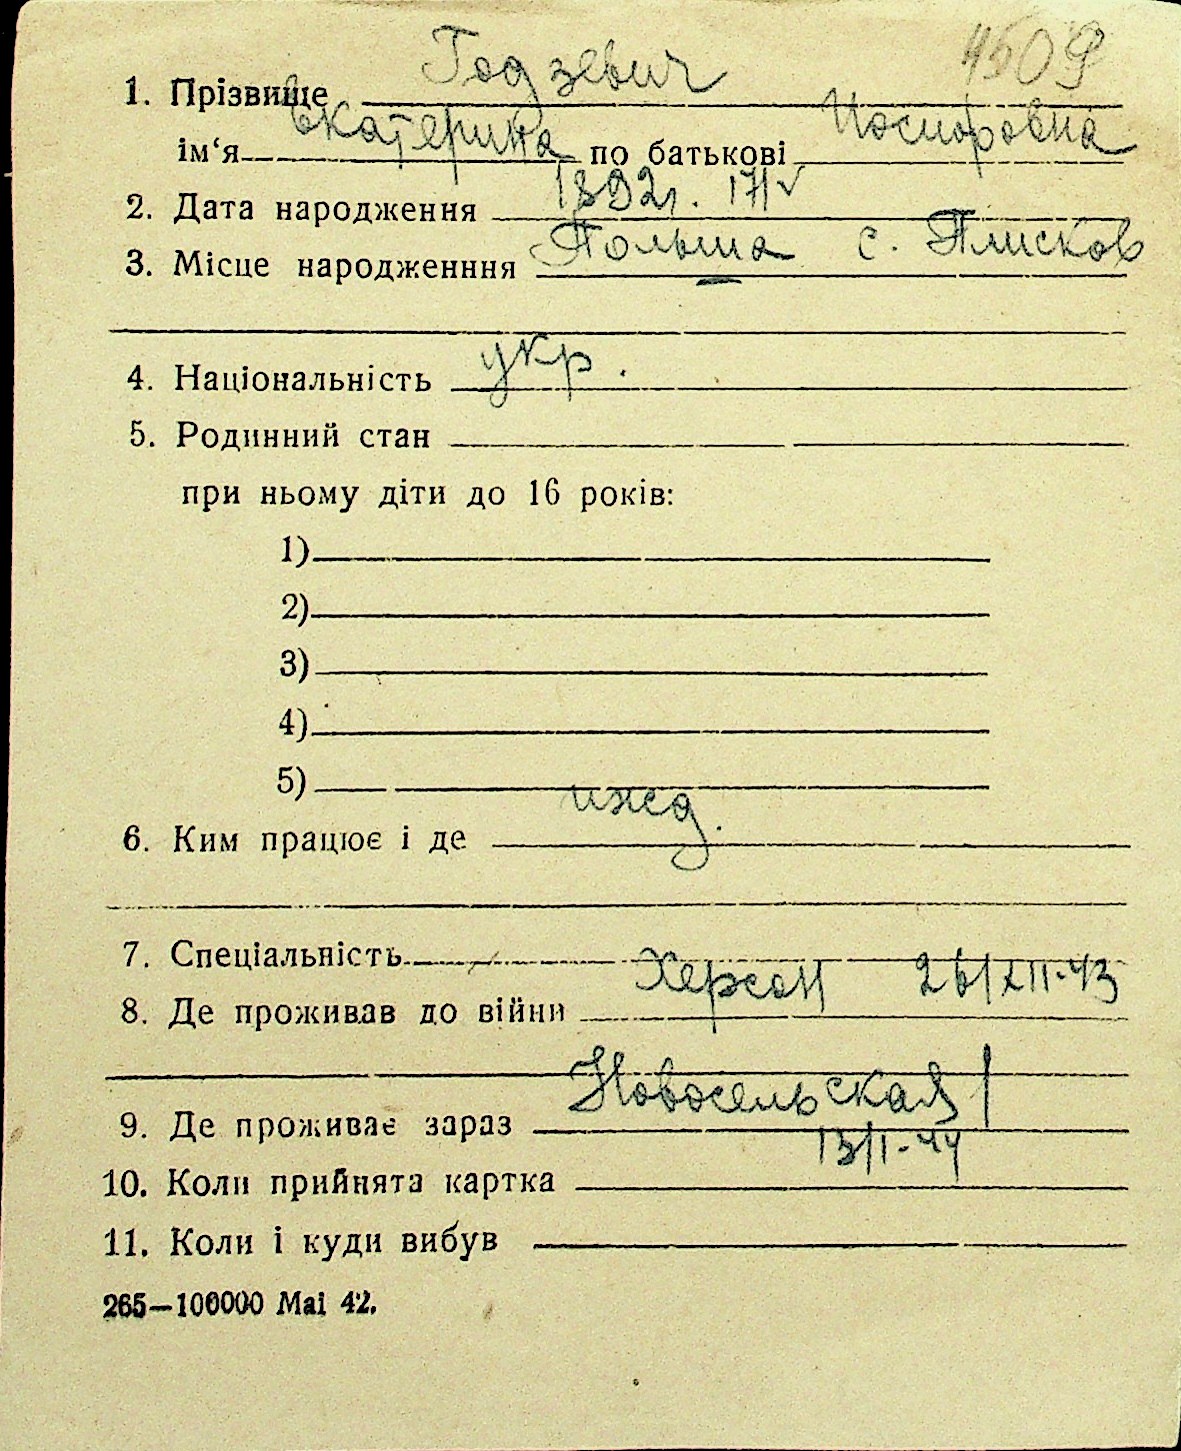 4509
1. Прізвище Годзевич
ім‘я Екатерина по батькові
2. Дата народження 1892г. 17/V
3. Місце народженння Польша с. Плисков
4. Національність укр.
5. Родинний стан
при ньому діти до 16 років:
1)
2)
3)
4)
5)
6. Ким працює і де ижд.
7. Спеціальність
8. Де проживав до війни Херсон 26/XII-43
9. Де проживає зараз Новосельская 1
13/I-44
10. Коли прийнята картка
11. Коли і куди вибув
265—100000 Mai 42.